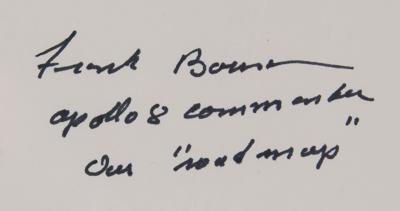 Frank Borman
apollo 8 commander
Our "road map"